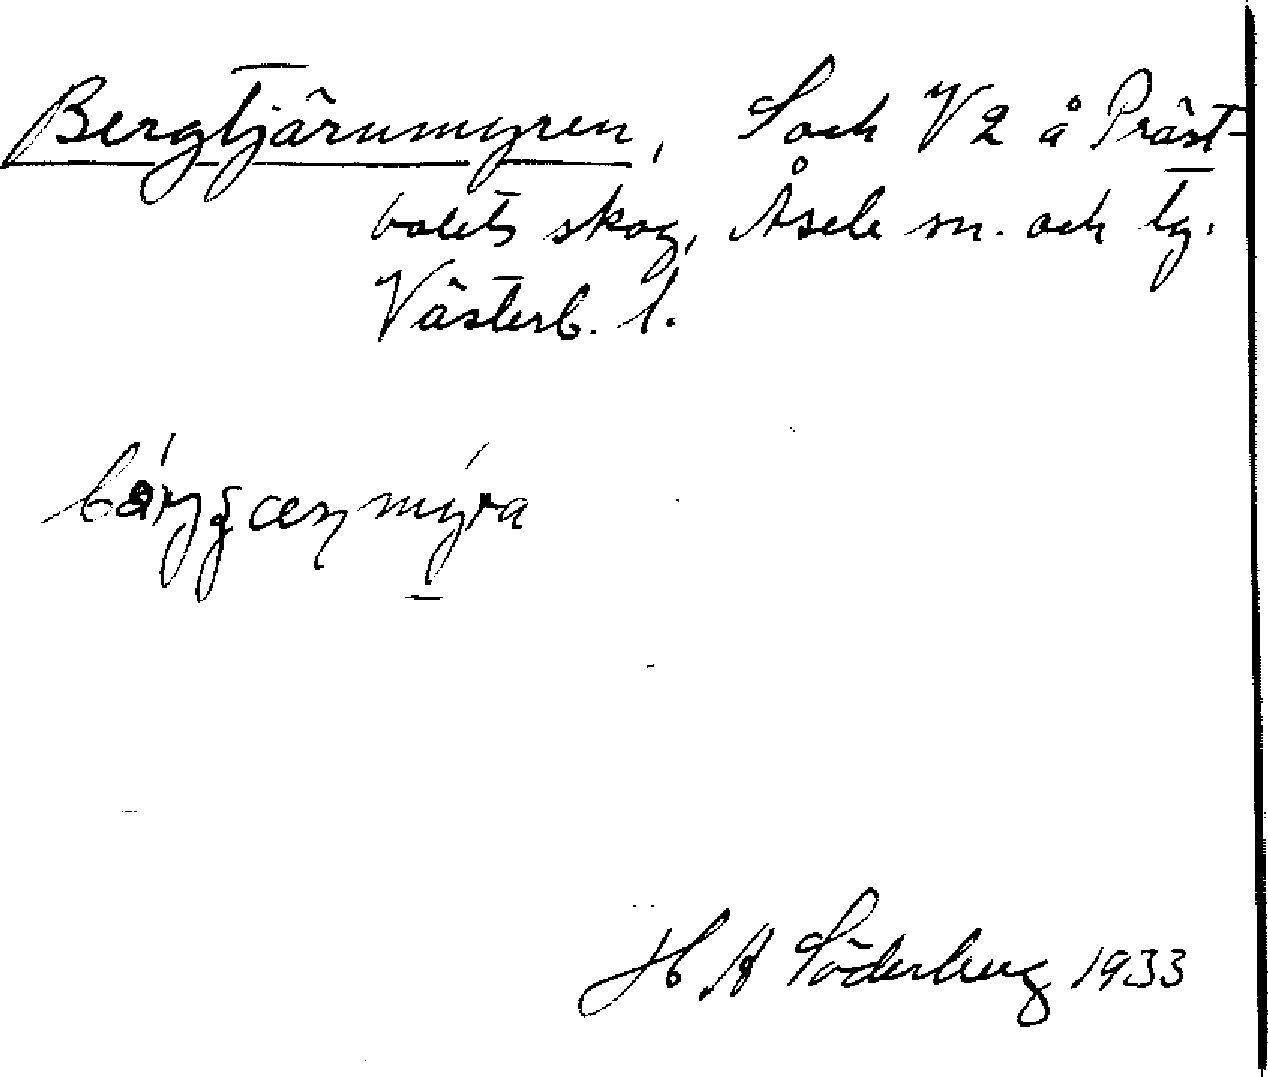 Bergtjärnmyren, S och V 2 å Präst-
bolets skog, Åsele sn. och lg.
Västerb. l.
H A Söderberg 1933